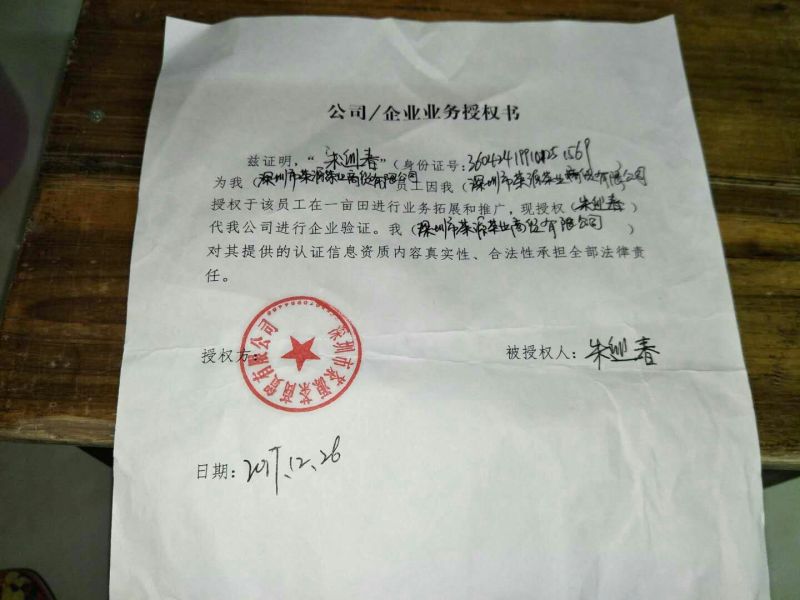 公司/企业业务授权书
兹证明，“朱迎春”（身份证号：
为我（深圳市荣源茶业商贸有限公司员工因我（深圳市荣源茶业商贸有限公司
授权于该员工在一亩田进行业务拓展和推广，现授权（朱迎春）
代我公司进行企业验证。我（深圳市荣源茶业商贸有限公司）
对其提供的认证信息资质内容真实性、合法性承担全部法律责
任。
授权方：
深圳市荣源茶业商贸有限公司
被授权人：朱迎春
日期：2017.12.26